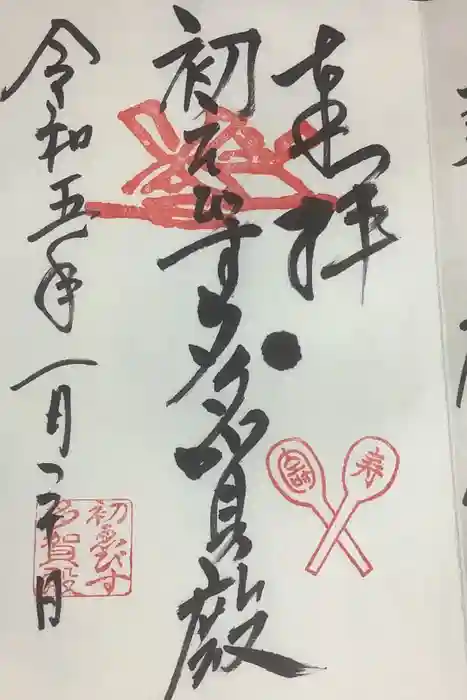 奉拝
初えびす多賀殿
令和五年一月二十日
寿
初ゑびす
多賀殿